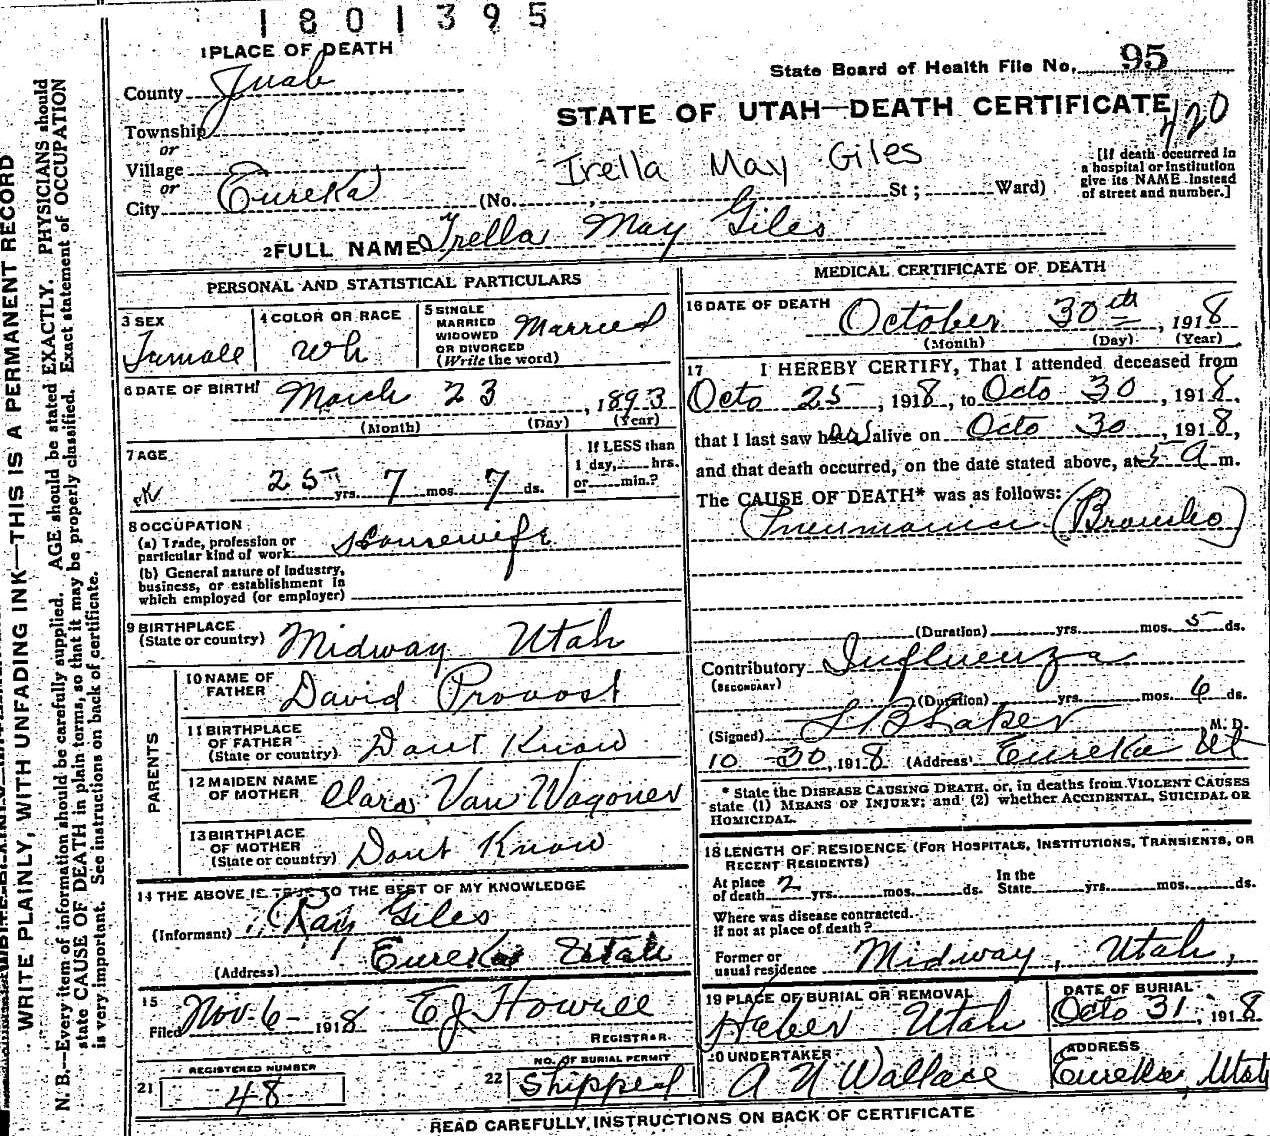 1801395
1 PLACE OF DEATH
State Board of Health File No. 95
County Juab
STATE OF UTAH—DEATH CERTIFICATE
420
Township
or
Village
or
City Eureka (No. St; Ward)
Irella May Giles
[If death occurred in
a hospital or institution
give its NAME instead
of street and number.]
2 FULL NAME Irella May Giles
PERSONAL AND STATISTICAL PARTICULARS
3 SEX
Female
4 COLOR OR RACE
Wh
5 SINGLE
MARRIED
WIDOWED
OR DIVORCED
(Write the word)
Married
6 DATE OF BIRTH
March 23, 1893
(Month) (Day) (Year)
7 AGE
25 yrs. 7 mos. 7 ds.
If LESS than
1 day, hrs.
or min.?
8 OCCUPATION
(a) Trade, profession or
particular kind of work Housewife
(b) General nature of Industry,
business, or establishment in
which employed (or employer)
9 BIRTHPLACE
(State or country) Midway Utah
PARENTS
10 NAME OF
FATHER David Provost
11 BIRTHPLACE
OF FATHER
(State or country) Dont Know
12 MAIDEN NAME
OF MOTHER Clara Van Wagoner
13 BIRTHPLACE
OF MOTHER
(State or country) Dont Know
14 THE ABOVE IS TRUE TO THE BEST OF MY KNOWLEDGE
(Informant) Ray Giles
(Address) Eureka Utah
15
Filed Nov. 6 - 1918 E J Howell
REGISTRAR.
21 REGISTERED NUMBER
48
22 NO. OF BURIAL PERMIT
Shipped
MEDICAL CERTIFICATE OF DEATH
16 DATE OF DEATH
October 30th, 1918
(Month) (Day) (Year)
17 I HEREBY CERTIFY, That I attended deceased from
Octo 25, 1918, to Octo 30, 1918,
that I last saw her alive on Octo 30, 1918,
and that death occurred, on the date stated above, at 5 A m.
The CAUSE OF DEATH* was as follows:
Pneumonia (Broncho)
(Duration) yrs. mos. 5 ds.
Contributory Influenza
(SECONDARY)
(Duration) yrs. mos. 6 ds.
(Signed) M. D.
10 - 30, 1918 (Address) Eureka Ut
* State the DISEASE CAUSING DEATH, or, in deaths from VIOLENT CAUSES
state (1) MEANS OF INJURY; and (2) whether ACCIDENTAL, SUICIDAL OR
HOMICIDAL.
18 LENGTH OF RESIDENCE (FOR HOSPITALS, INSTITUTIONS, TRANSIENTS, OR
RECENT RESIDENTS)
At place
of death 2 yrs. mos. ds. In the
State yrs. mos. ds.
Where was disease contracted.
If not at place of death?
Former or
usual residence Midway, Utah,
19 PLACE OF BURIAL OR REMOVAL
Heber Utah
DATE OF BURIAL
Octo 31, 1918
20 UNDERTAKER
A N Wallace
ADDRESS
Eureka, Utah
READ CAREFULLY, INSTRUCTIONS ON BACK OF CERTIFICATE
WRITE PLAINLY, WITH UNFADING INK—THIS IS A PERMANENT RECORD
N. B.—Every item of information should be carefully supplied. AGE should be stated EXACTLY. PHYSICIANS should
state CAUSE OF DEATH in plain terms, so that it may be properly classified. Exact statement of OCCUPATION
is very important. See instructions on back of certificate.